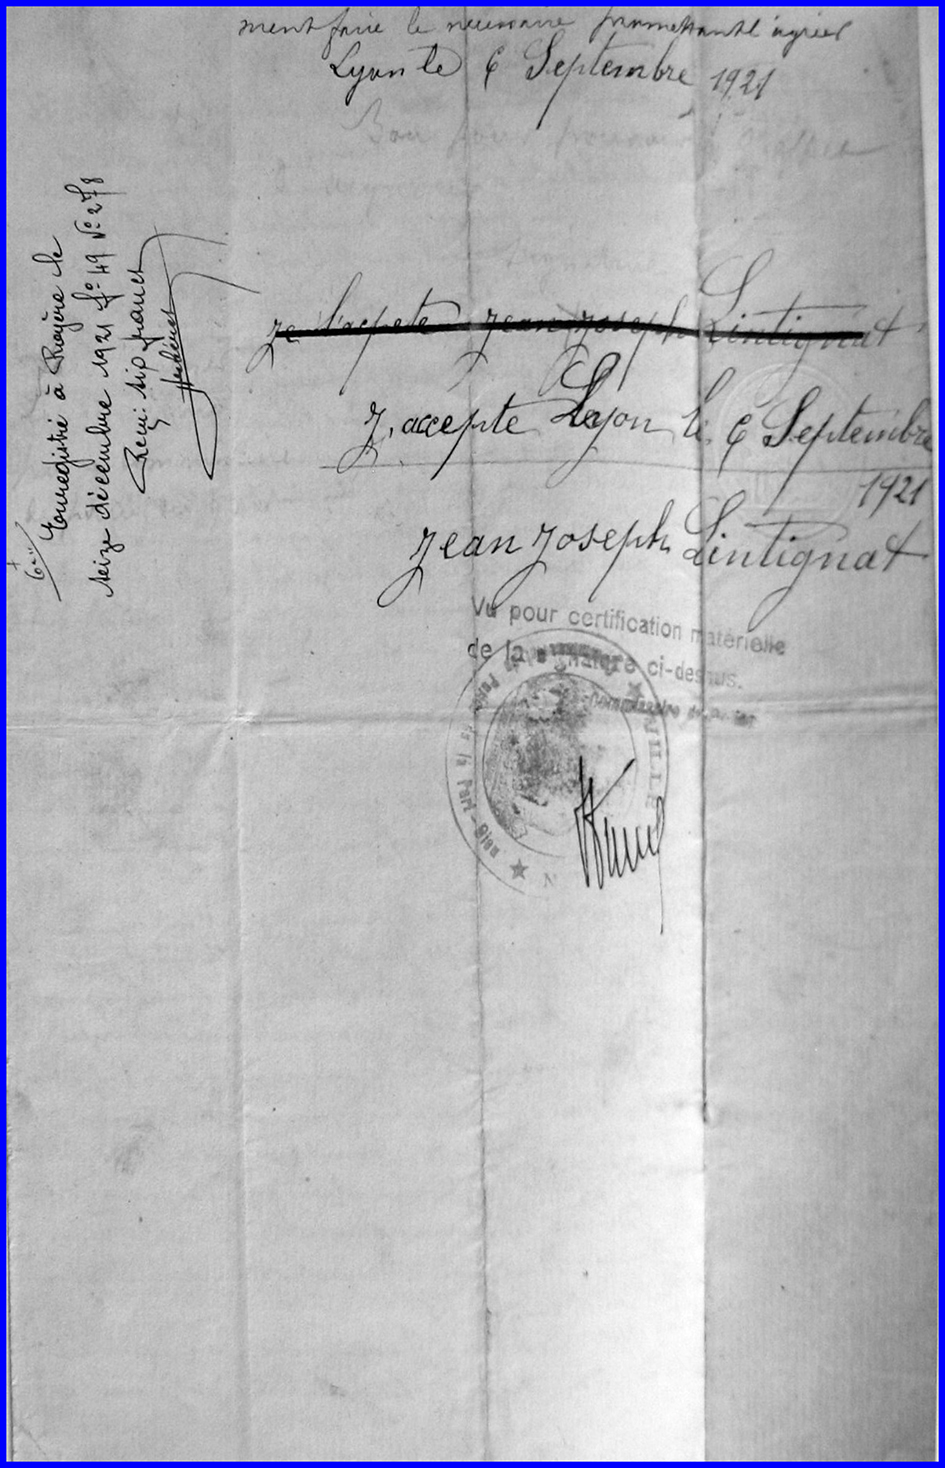 ment faire le nécessaire promettant l'agréer
Lyon le 6 Septembre 1921
Bon pour pouvoir
je l'acepte Jean Joseph Lintignat
J,accepte Lyon le 6 Septembre
1921
Jean Joseph Lintignat
Vu pour certification matérielle
de la signature ci-dessus.
Enregistré à Royère le
seize décembre 1921 fo 49 No 278
Reçu six francs